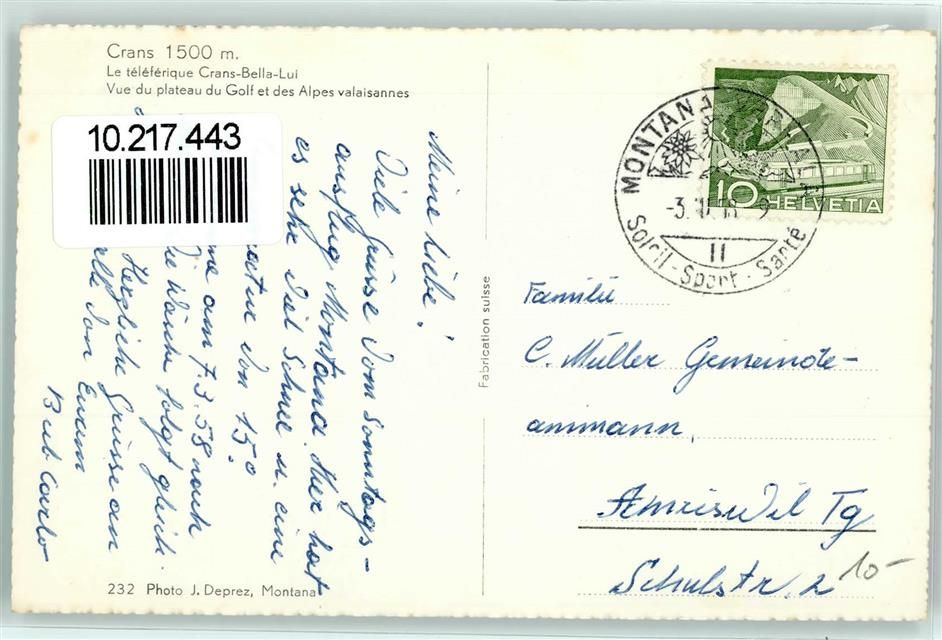 Crans 1500 m.
Le téléférique Crans-Bella-Lui
Vue du plateau du Golf et des Alpes valaisannes
10.217.443
Meine liebe!
Viele Grüsse vom Sonntags-
ausflug Montana. Hier hat
es sehr viel Schnee u. eine
von 15°
am 7.3.58 nach
Wäsche folgt gleich.
Herzliche Grüsse an
alle von Eurem
Bub Carlo
232 Photo J. Deprez, Montana
Fabrication suisse
MONTANA
Soleil - Sport - Santé
-3. 58 - 9
II
10 HELVETIA
Familie
C. Müller Gemeinde-
ammann,
Amriswil Tg
Schulstr. 2
10-